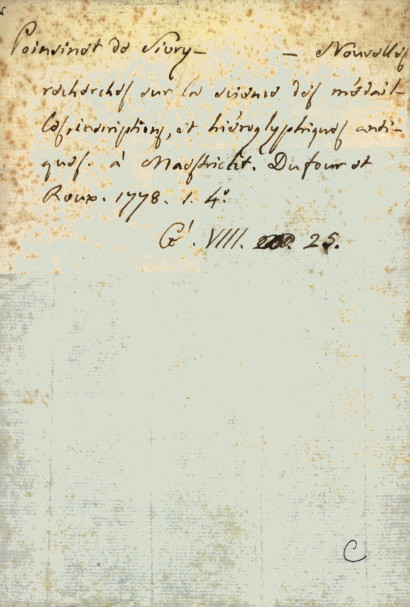 Poinsinet de Sivry — — Nouvelles
recherches sur la science des médail-
les, inscriptions, et hiéroglyphiques anti-
ques. à Maestricht. Dufour et
Roux. 1778. 1. 4°
VIII. 25.
C